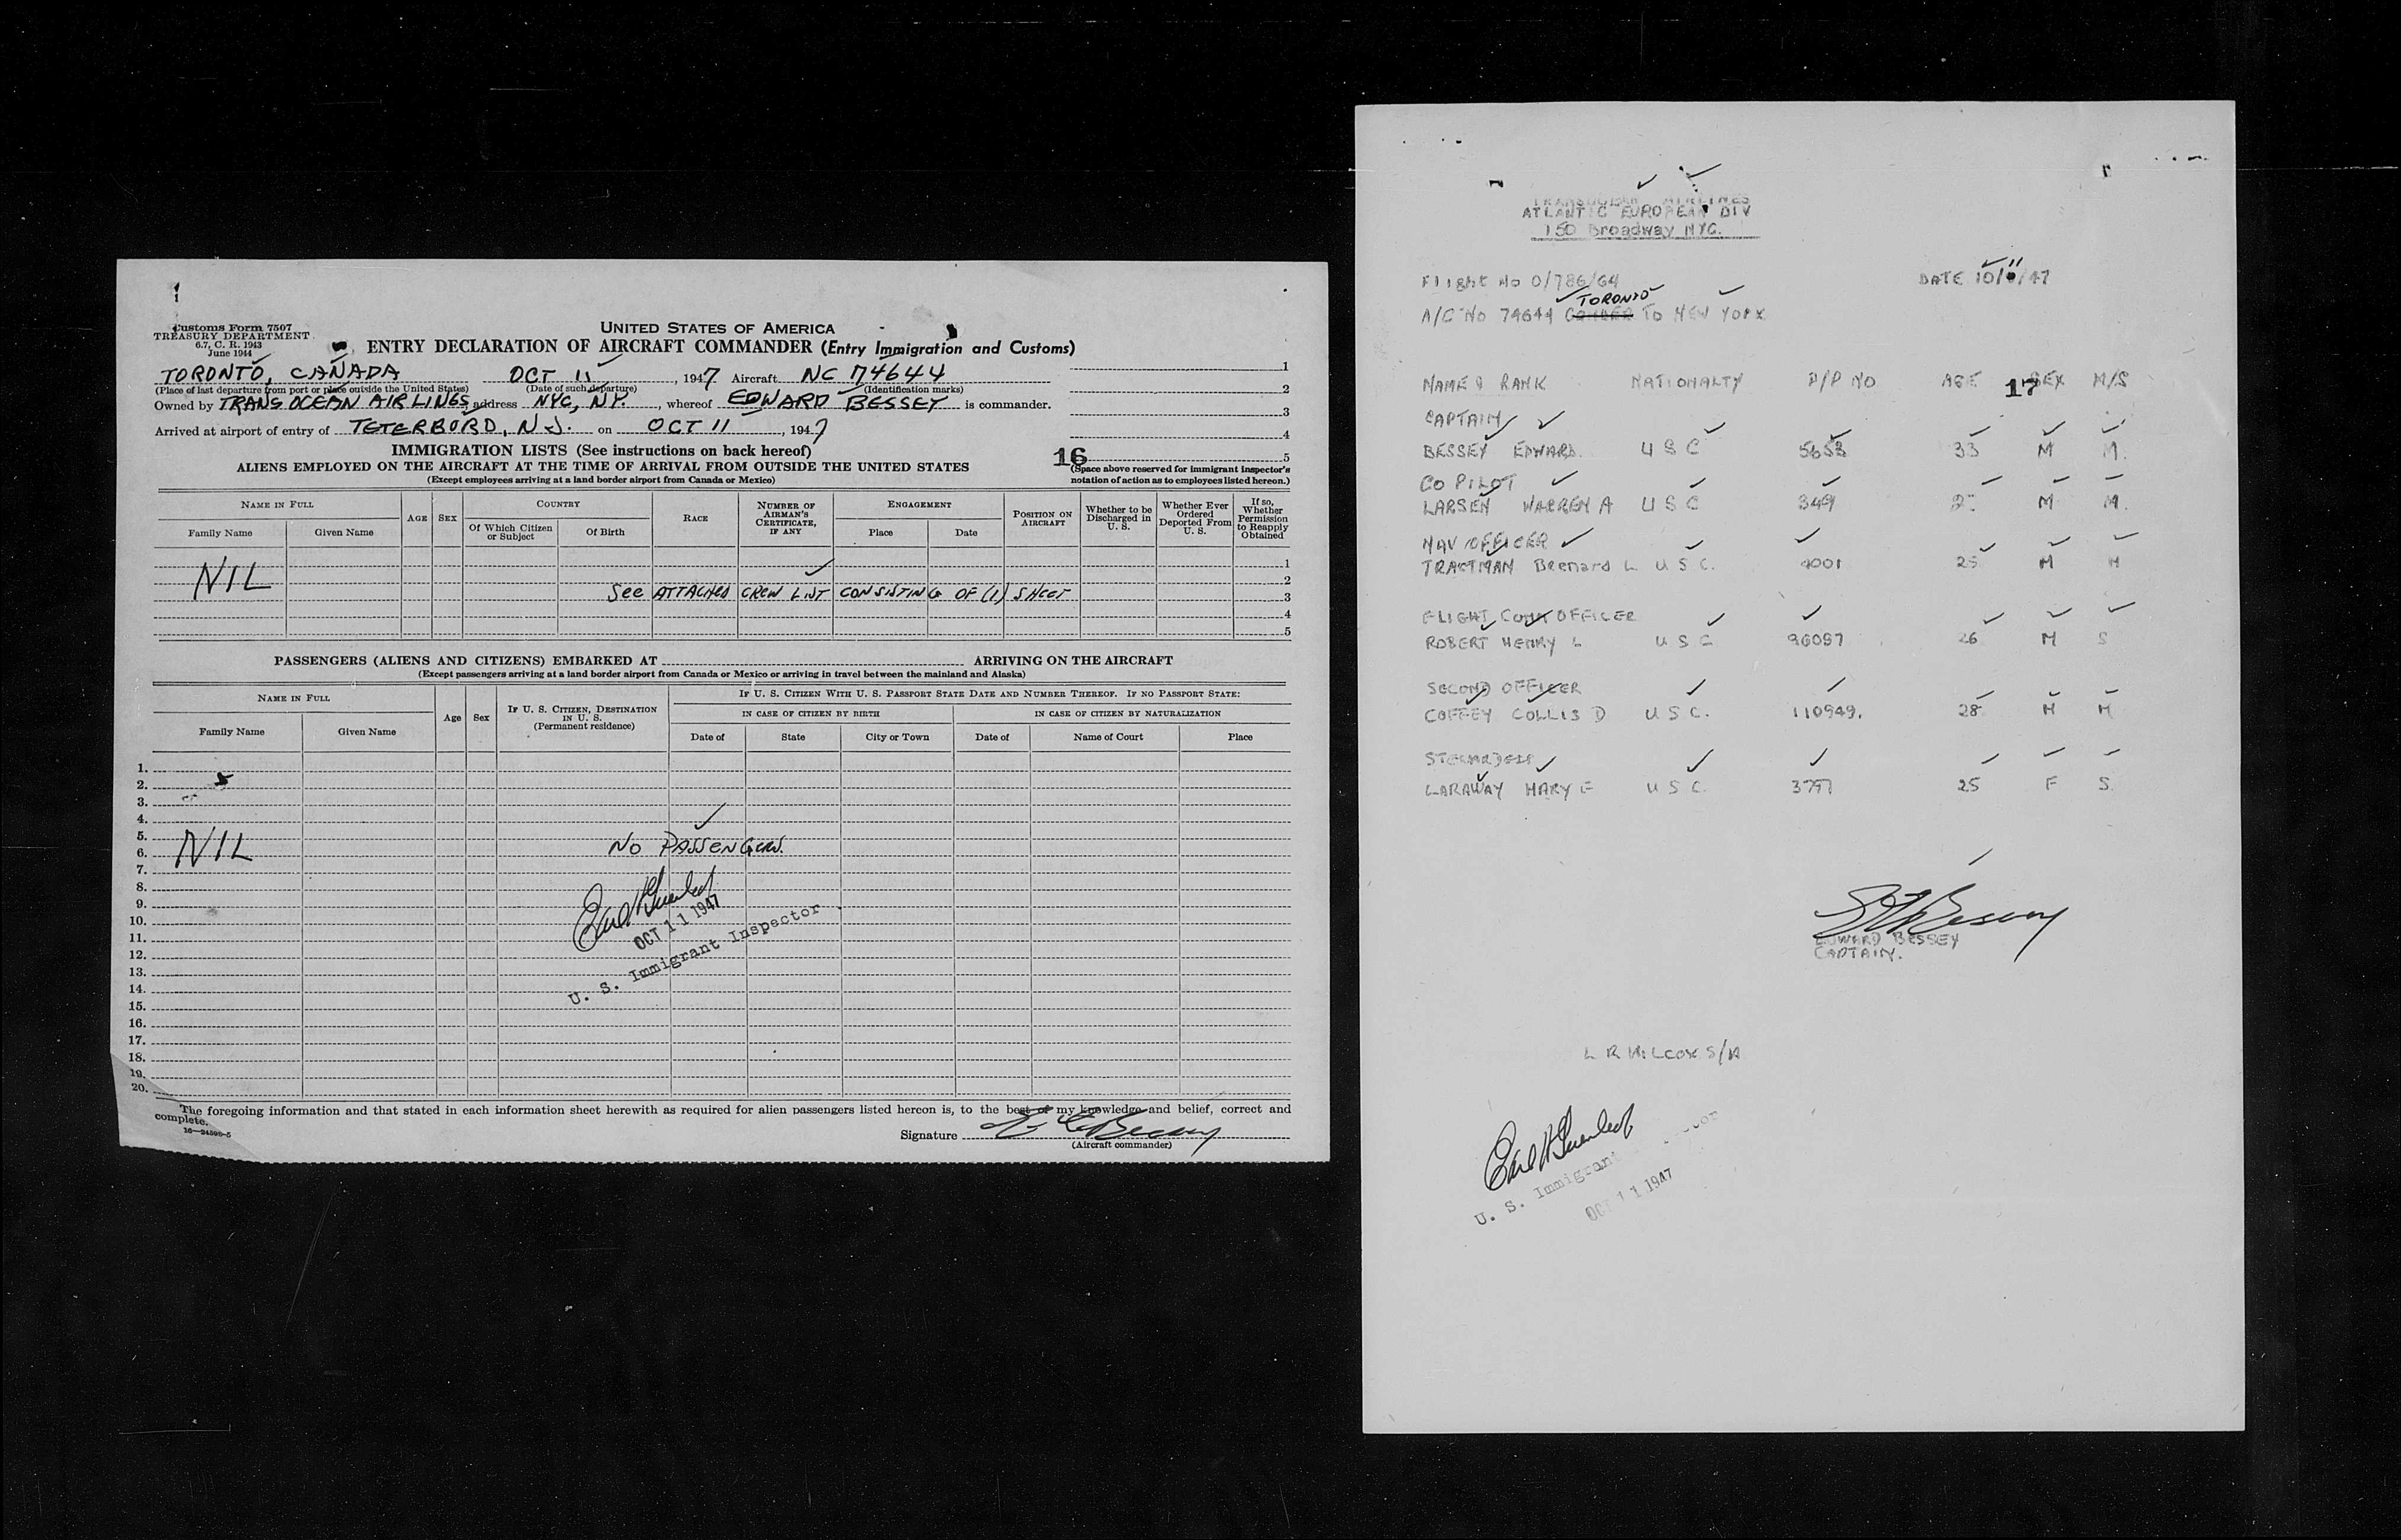 Customs Form 7507
TREASURY DEPARTMENT
6.7, C. R. 1943
June 1944
UNITED STATES OF AMERICA
ENTRY DECLARATION OF AIRCRAFT COMMANDER (Entry Immigration and Customs)
TORONTO, CANADA OCT 11, 1947 Aircraft NC 74644
(Place of last departure from port or place outside the United States) (Date of such departure) (Identification marks)
Owned by TRANS OCEAN AIRLINES, address NYC, NY., whereof EDWARD BESSEY is commander.
Arrived at airport of entry of TETERBORO, N J. on OCT 11, 1947
1
2
3
4
5
16
(Space above reserved for immigrant inspector's
notation of action as to employees listed hereon.)
IMMIGRATION LISTS (See instructions on back hereof)
ALIENS EMPLOYED ON THE AIRCRAFT AT THE TIME OF ARRIVAL FROM OUTSIDE THE UNITED STATES
(Except employees arriving at a land border airport from Canada or Mexico)
NAME IN FULL
Family Name Given Name
AGE SEX
COUNTRY
Of Which Citizen or Subject Of Birth
RACE
NUMBER OF AIRMAN'S CERTIFICATE, IF ANY
ENGAGEMENT
Place Date
POSITION ON AIRCRAFT
Whether to be Discharged in U. S.
Whether Ever Ordered Deported From U. S.
If so, Whether Permission to Reapply Obtained
1
NIL 2
See ATTACHED CREW LIST CONSISTING OF (1) SHEET 3
4
5
PASSENGERS (ALIENS AND CITIZENS) EMBARKED AT ARRIVING ON THE AIRCRAFT
(Except passengers arriving at a land border airport from Canada or Mexico or arriving in travel between the mainland and Alaska)
NAME IN FULL
Family Name Given Name
Age Sex
IF U. S. CITIZEN, DESTINATION IN U. S.
(Permanent residence)
IF U. S. CITIZEN WITH U. S. PASSPORT STATE DATE AND NUMBER THEREOF. IF NO PASSPORT STATE:
IN CASE OF CITIZEN BY BIRTH IN CASE OF CITIZEN BY NATURALIZATION
Date of State City or Town Date of Name of Court Place
1.
2.
3.
4.
5.
6. NIL NO PASSENGERS.
7.
8.
9.
10.
11.
12.
13.
14.
15.
16.
17.
18.
19.
20.
OCT 11 1947
U. S. Immigrant Inspector
The foregoing information and that stated in each information sheet herewith as required for alien passengers listed hereon is, to the best of my knowledge and belief, correct and
complete.
16—24598-5
Signature
(Aircraft commander)
TRANSOCEAN AIRLINES
ATLANTIC EUROPEAN DIV
150 Broadway NYC.
Flight No 0/786/64 DATE 10/11/47
A/C No 74644 GANDER TORONTO TO NEW YORK
NAME & RANK NATIONALTY P/P NO AGE SEX M/S
17
CAPTAIN
BESSEY EDWARD. U S C 5653 33 M M.
CO PILOT
LARSEN WARREN A U S C 349 M M.
NAV OFFICER
TRAETMAN Bernard L U S C. 4001 25 M M
FLIGHT COMM OFFICER
ROBERT HENRY L U S C 96097 26 M S
SECOND OFFICER
COFFEY COLLIS D U S C. 110949. 28 M M
STEWARDESS
LARAWAY MARY E U S C. 3797 25 F S.
EDWARD BESSEY
CAPTAIN.
L R WILCOX S/A
U. S. Immigrant
OCT 11 1947